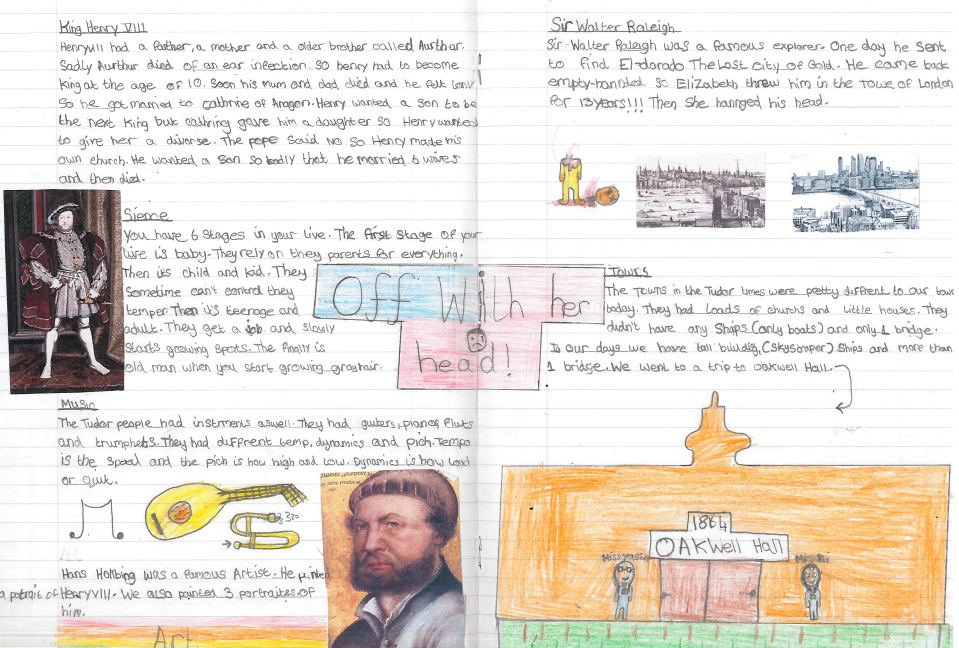 King Henry VIII
HenryVII had a father, a mother and a older brother called Aurthar.
Sadly Aurthur died of an ear infection so henry had to become
King at the age of 10. Soon his Mum and dad died and he felt lonly
So he got married to cathrine of Aragon. Henry wanted a son to be
the next King but cathring gave him a daughter so Henry wanted
to give her a diverse. The pope said No so Henry made his
own church. He wanted a son so badly that he married 6 wives
and then died.
Sience
You have 6 stages in your live. The first stage of your
life is baby. They rely on they parents for everything.
Then its child and kid. They
Sometime can't control they
temper. Then it's teenage and
adult. They get a job and slowly
starts growing spots. The finally is
old man when you start growing gray hair.
Off With her
head!
Music
The Tudar people had instments aswell. They had guters, pianos, fluts
and trumphets. They had diffrent temp, dynamics and pich. Tempo
is the speed and the pich is how high and low. Dynamics is how loud
or quit.
Hans Holbing was a famous Artist. He painted
a potrait of HenryVIII. We also painted 3 portraites of
him.
Art
Sir Walter Raleigh
Sir Walter Raleigh was a famous explorer. One day he sent
to find El-dorado The Lost city of Gold. He came back
empty-handed so Elizabeth threw him in the Towe of London
for 13 years!!! Then she hannged his head.
Towrs
The Towns in the Tudor times were pretty diffrent to our town
today. They had Loads of churchs and little houses. They
didn't have any Ships (only boats) and only 1 bridge.
In our days we have tall buildig, (skyscraper) ships and more than
1 bridge. We went to a trip to oakwell Hall.
1864
OAKWell Hall